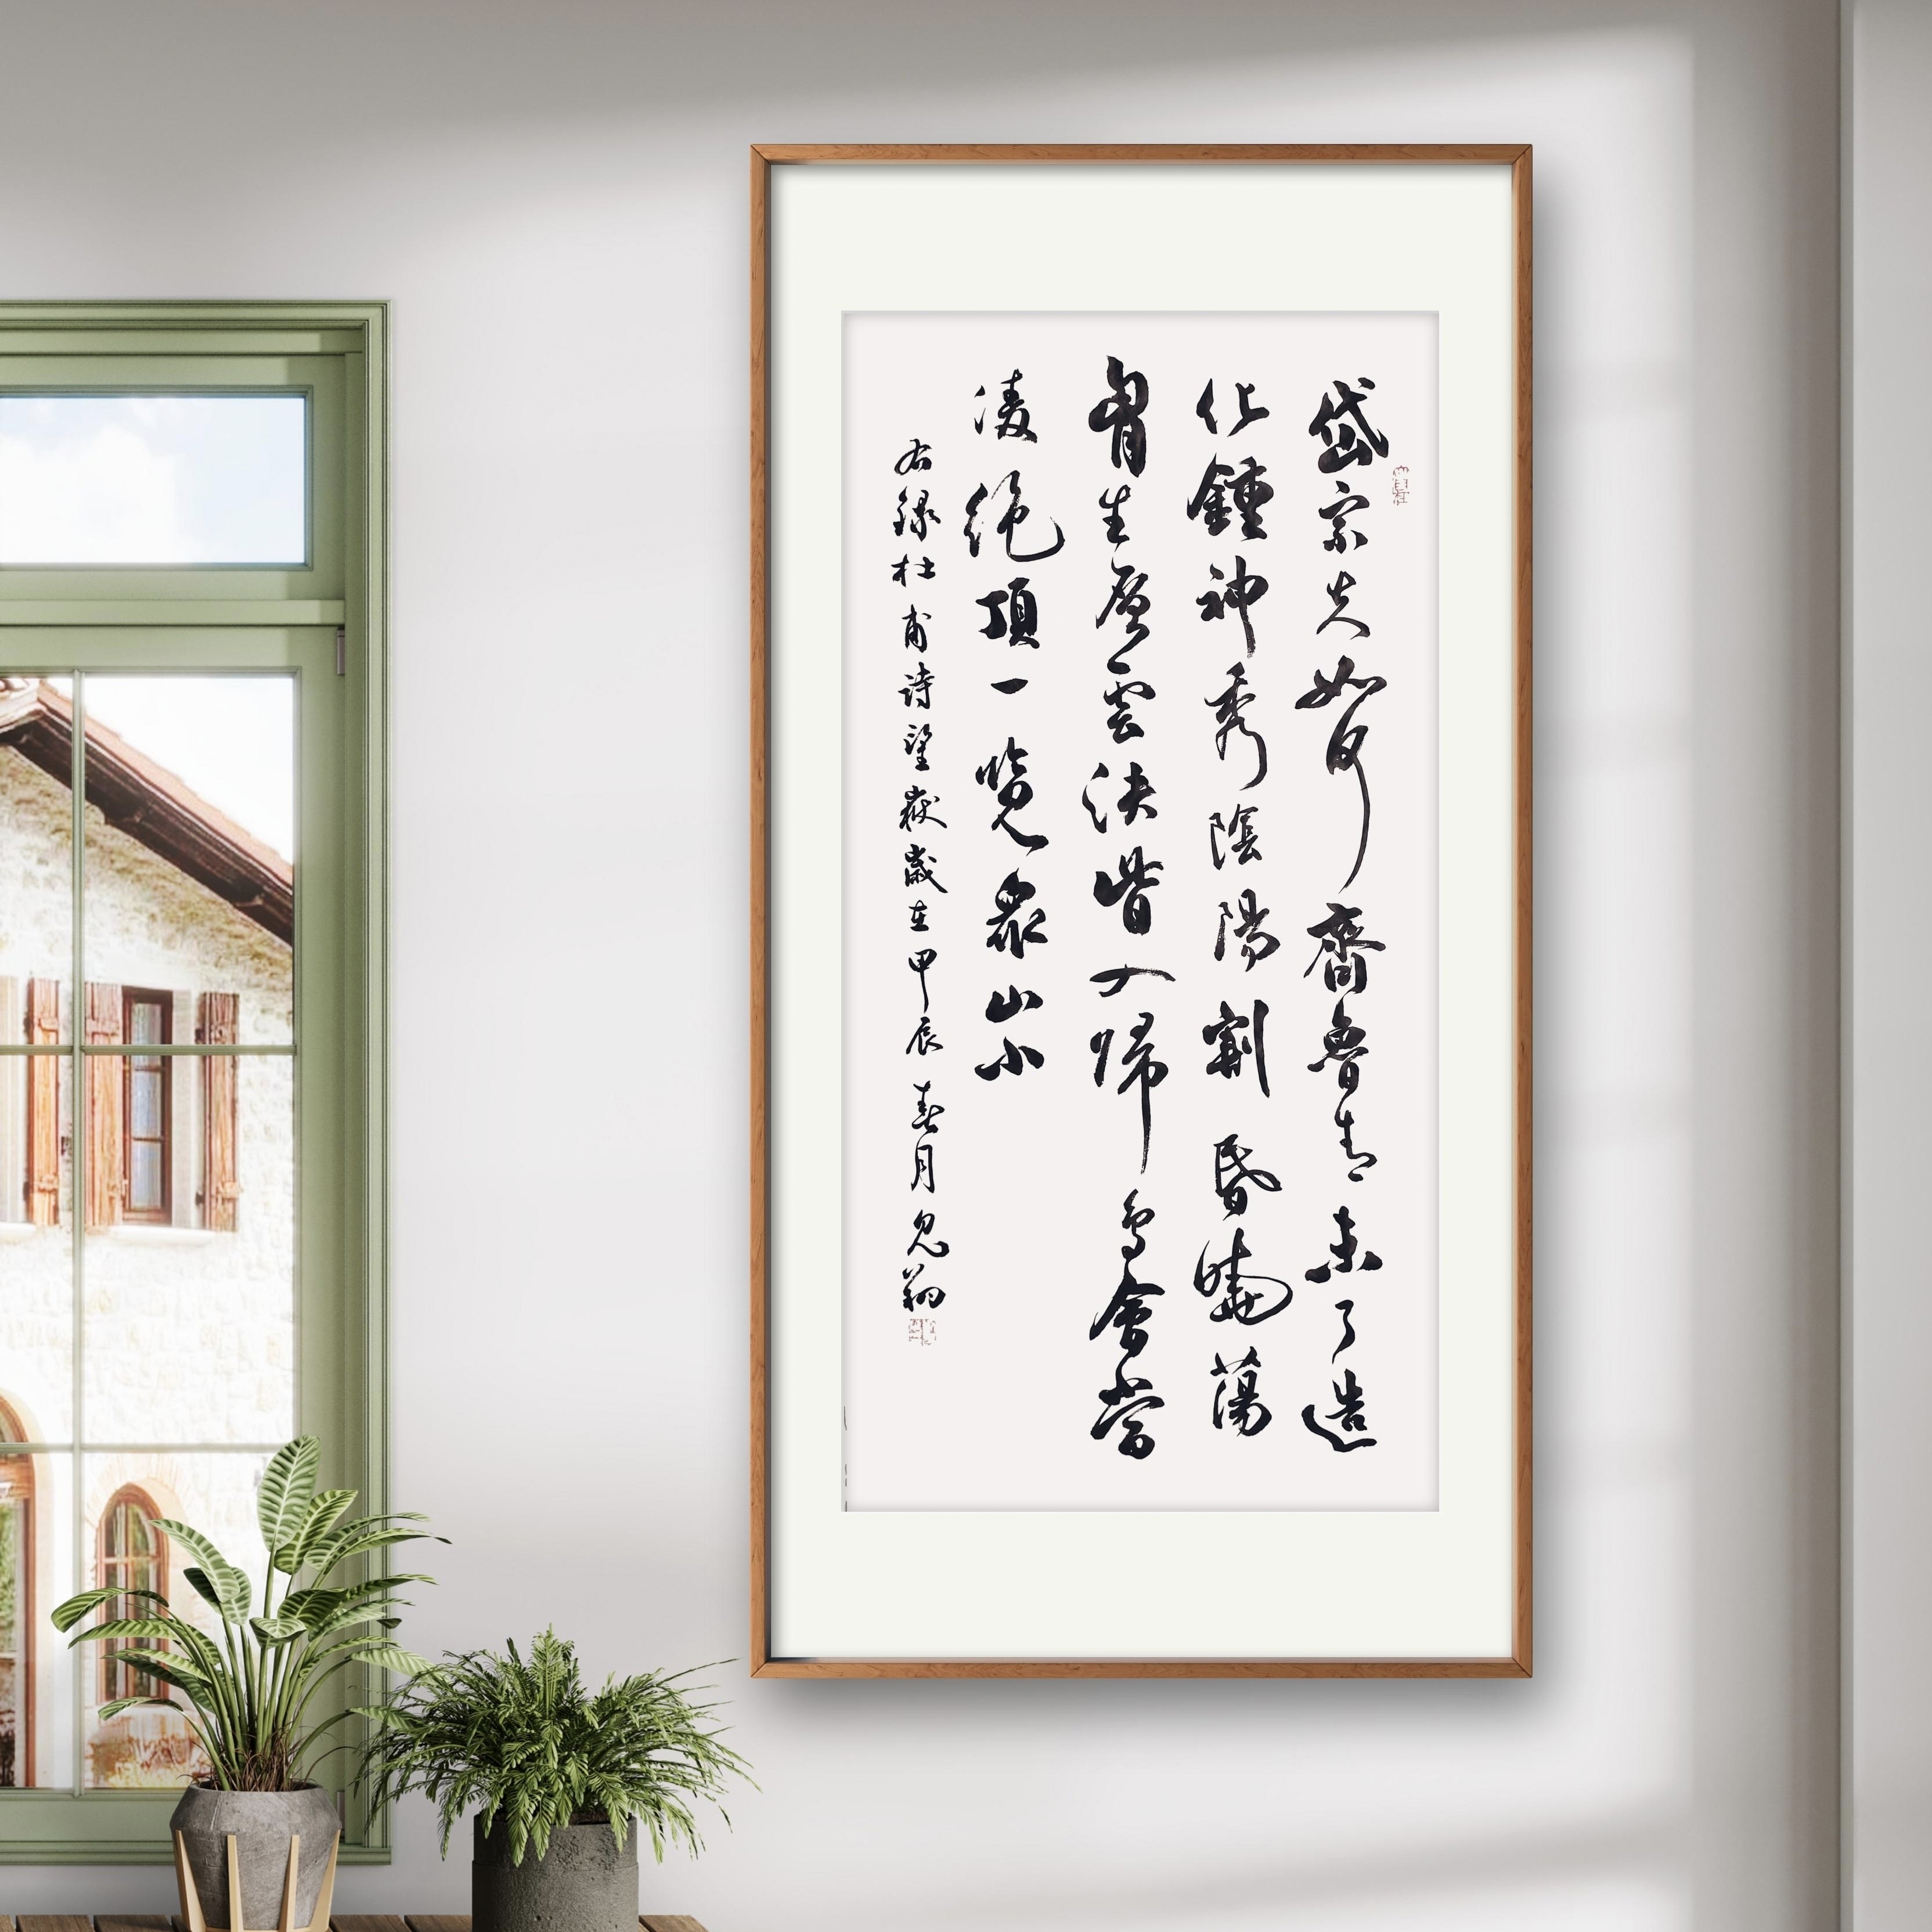 岱宗夫如何齊魯青未了造
化鍾神秀陰陽割昏曉蕩
胷生層雲決眥入歸鳥會當
凌絕頂一覽衆山小
右錄杜甫詩望嶽歲在甲辰春月